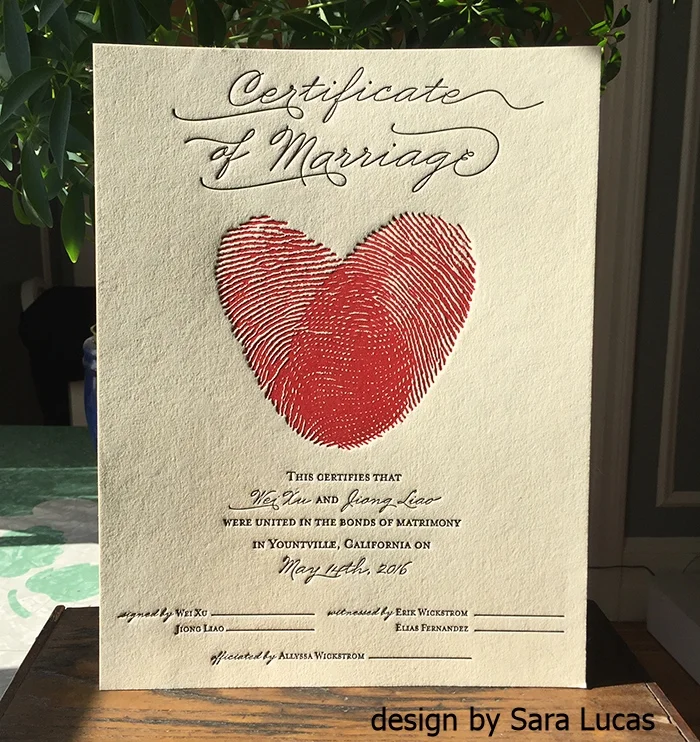 Certificate
of Marriage
This certifies that
Wei Xu and Jiong Liao
were united in the bonds of matrimony
in Yountville, California on
May 14th, 2016
signed by Wei Xu
witnessed by Erik Wickstrom
Jiong Liao
Elias Fernandez
officiated by Allyssa Wickstrom
design by Sara Lucas